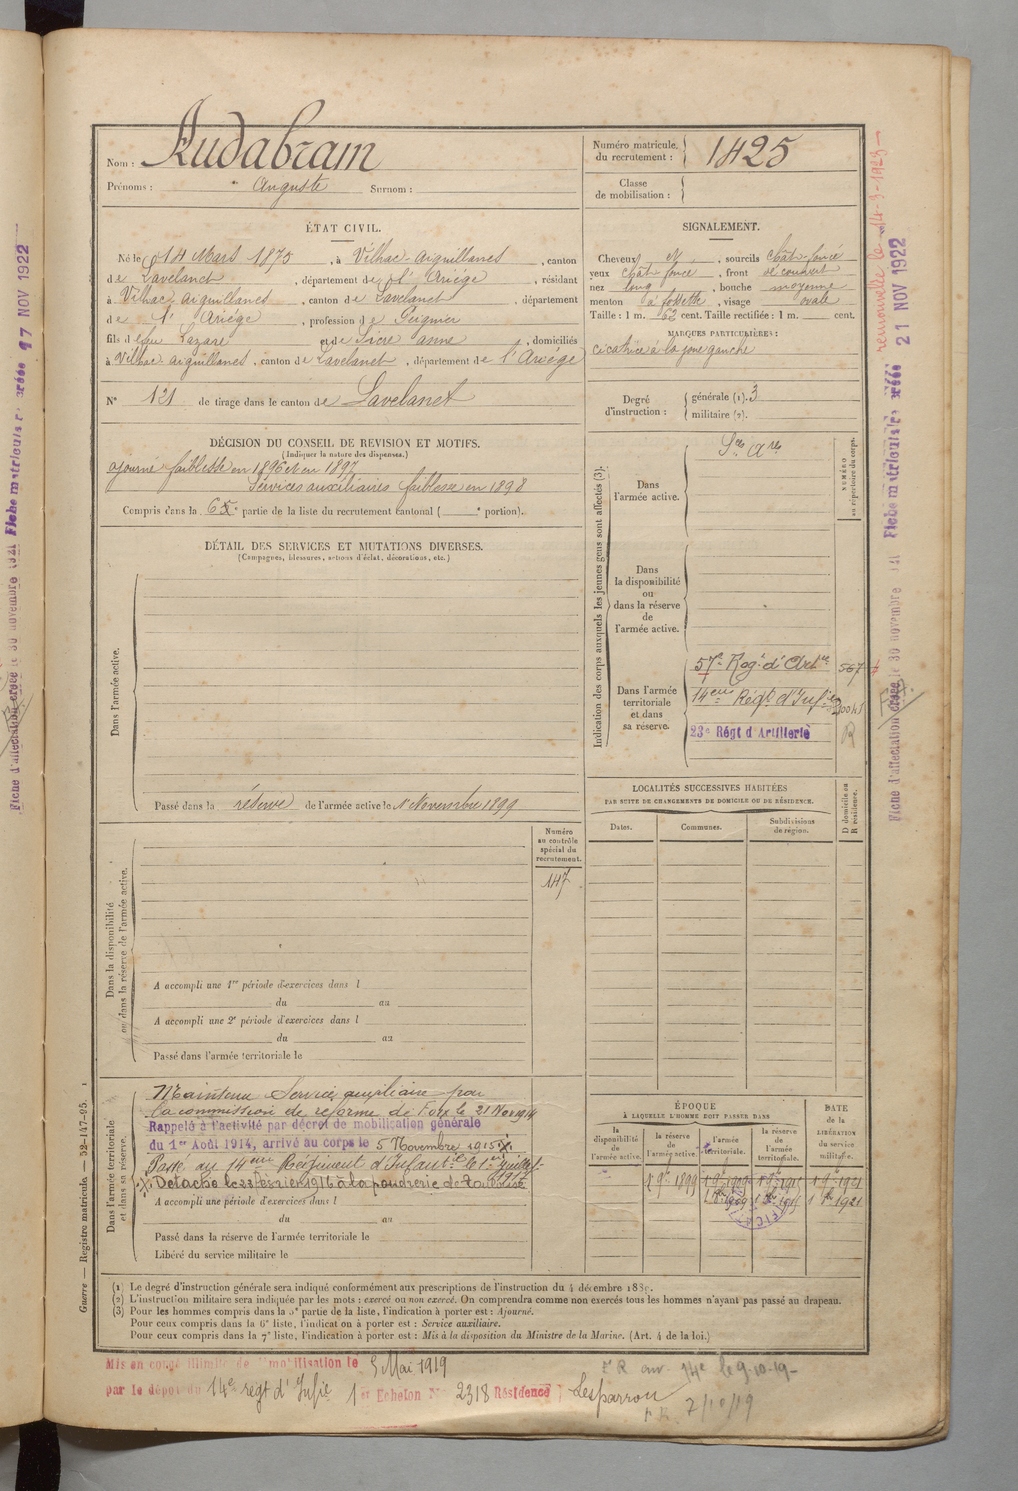 Nom : Audabram
Prénoms : Auguste Surnom :
Numéro matricule du recrutement : 1425
Classe de mobilisation :
ÉTAT CIVIL.
Né le 14 Mars 1875, à Vilhac-Aiguillanes, canton
de Lavelanet, département de l'Ariége, résidant
à Vilhac, Aiguillanes, canton de Lavelanet, département
de l'Ariége, profession de Peignier
fils de feu Lazare et de Sicre anne, domiciliés
à Vilhac aiguillanes, canton de Lavelanet, département de l'Ariége
N° 121 de tirage dans le canton de Lavelanet
SIGNALEMENT.
Cheveux N, sourcils chât-foncé
yeux chât foncé, front découvert
nez long, bouche moyenne
menton à fossette, visage ovale
Taille : 1 m. 62 cent. Taille rectifiée : 1 m. cent.
MARQUES PARTICULIÈRES :
cicatrice à la joue gauche
Degré d'instruction : générale (1). 3
militaire (2).
DÉCISION DU CONSEIL DE REVISION ET MOTIFS.
(Indiquer la nature des dispenses.)
ajourné faiblesse en 1896 et en 1897
Services auxiliaires faiblesse en 1898
Compris dans la 6e partie de la liste du recrutement cantonal ( e portion).
DÉTAIL DES SERVICES ET MUTATIONS DIVERSES.
(Campagnes, blessures, actions d'éclat, décorations, etc.)
Dans l'armée active.
Passé dans la réserve de l'armée active le 1er Novembre 1899
Indication des corps auxquels les jeunes gens sont affectés (3).
NUMÉRO au répertoire du corps.
Dans l'armée active.
Sces ares
Dans la disponibilité ou dans la réserve de l'armée active.
Dans l'armée territoriale et dans sa réserve.
57e Reg. d'Artie 567
14eme Régt d'Infie
23e Régt d'Artillerie R
LOCALITÉS SUCCESSIVES HABITÉES
PAR SUITE DE CHANGEMENTS DE DOMICILE OU DE RÉSIDENCE.
Dates. Communes. Subdivisions de région. D domicile ou R résidence.
Dans la disponibilité ou dans la réserve de l'armée active.
Numéro au contrôle spécial du recrutement.
147
A accompli une 1re période d'exercices dans l
du au
A accompli une 2e période d'exercices dans l
du au
Passé dans l'armée territoriale le
Dans l'armée territoriale et dans sa réserve.
Maintenu Service auxiliaire par
la commission de réforme de Foix le 21 Nov 1914
Rappelé à l'activité par décret de mobilisation générale
du 1er Août 1914, arrivé au corps le 5 Novembre 1915
Passé au 14eme Régiment d'Infantie le 1er Juillet
1917
Détaché le 23 février 1916 à la poudrerie de Toulouse
A accompli une période d'exercices dans l
du au
Passé dans la réserve de l'armée territoriale le
Libéré du service militaire le
ÉPOQUE
À LAQUELLE L'HOMME DOIT PASSER DANS
la disponibilité de l'armée active. la réserve de l'armée active. l'armée territoriale. la réserve de l'armée territoriale.
DATE de la LIBÉRATION du service militaire.
1 9e 1899 1 9e 1909 1 9e 1915 1 9e 1921
1 1909 1 1915 1 1921
(1) Le degré d'instruction générale sera indiqué conformément aux prescriptions de l'instruction du 4 décembre 1889.
(2) L'instruction militaire sera indiquée par les mots : exercé ou non exercé. On comprendra comme non exercés tous les hommes n'ayant pas passé au drapeau.
(3) Pour les hommes compris dans la 5e partie de la liste, l'indication à porter est : Ajourné.
Pour ceux compris dans la 6e liste, l'indication à porter est : Service auxiliaire.
Pour ceux compris dans la 7e liste, l'indication à porter est : Mis à la disposition du Ministre de la Marine. (Art. 4 de la loi.)
Mis en congé illimité de démobilisation le 5 Mai 1919
par le dépôt du 14e régt d'Infie 1er Echelon N° 2318 Résidence : Lesparrou
14e le 9-10-19-
7/10/19
Guerre — Registre matricule. — 52-147-95.
renouvelle le 14-3-1923 —
Fiche matricule créée 21 NOV 1922
Fiche d'affectation créée le 30 novembre 1921
Fiche matricule créée 17 NOV 1922
Fiche d'affectation créée le 30 novembre 1921